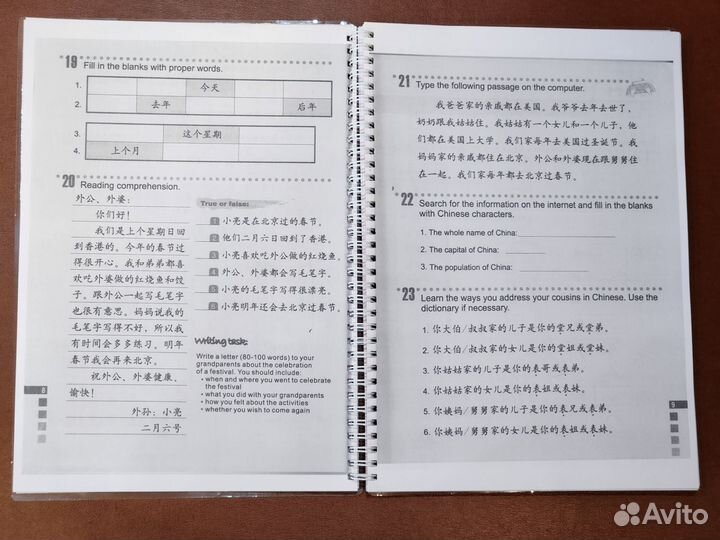 19 Fill in the blanks with proper words.
1. 今天
2. 去年 后年
3. 这个星期
4. 上个月
20 Reading comprehension.
外公、外婆:
你们好!
我们是上个星期日回
到香港的。今年的春节过
得很开心。我和弟弟都喜
欢吃外婆做的红烧鱼和饺
子。跟外公一起写毛笔字
也很有意思。妈妈说我的
毛笔字写得不好，所以我
有时间会多多练习。明年
春节我会再来北京。
祝外公、外婆健康、
愉快!
外孙:小亮
二月六号
True or false:
1 小亮是在北京过的春节。
2 他们二月六日回到了香港。
3 小亮喜欢吃外公做的红烧鱼。
4 外公、外婆都会写毛笔字。
5 小亮的毛笔字写得很漂亮。
6 小亮明年还会去北京过春节。
Writing task:
Write a letter (80-100 words) to your
grandparents about the celebration
of a festival. You should include:
• when and where you went to celebrate
the festival
• what you did with your grandparents
• how you felt about the activities
• whether you wish to come again
8
21 Type the following passage on the computer.
我爸爸家的亲戚都在美国。我爷爷去年去世了，
奶奶跟我姑姑住。我姑姑有一个女儿和一个儿子，他
们都在美国上大学。我们家每年去美国过圣诞节。我
妈妈家的亲戚都住在北京。外公和外婆现在跟舅舅住
在一起。我们家每年都去北京过春节。
22 Search for the information on the internet and fill in the blanks
with Chinese characters.
1. The whole name of China:
2. The capital of China:
3. The population of China:
23 Learn the ways you address your cousins in Chinese. Use the
dictionary if necessary.
1. 你大伯/叔叔家的儿子是你的堂兄或堂弟。
2. 你大伯/叔叔家的女儿是你的堂姐或堂妹。
3. 你姑姑家的儿子是你的表哥或表弟。
4. 你姑姑家的女儿是你的表姐或表妹。
5. 你姨妈/舅舅家的儿子是你的表兄或表弟。
6. 你姨妈/舅舅家的女儿是你的表姐或表妹。
9
Avito